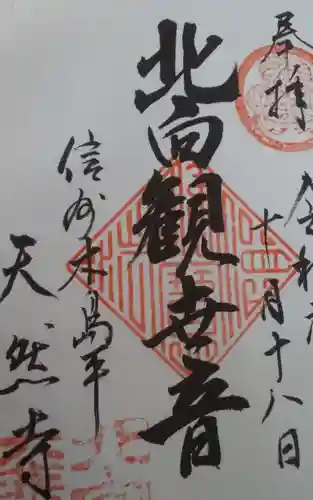 奉拝
令和六年
十一月十八日
北向観世音
信州木島平
天然寺